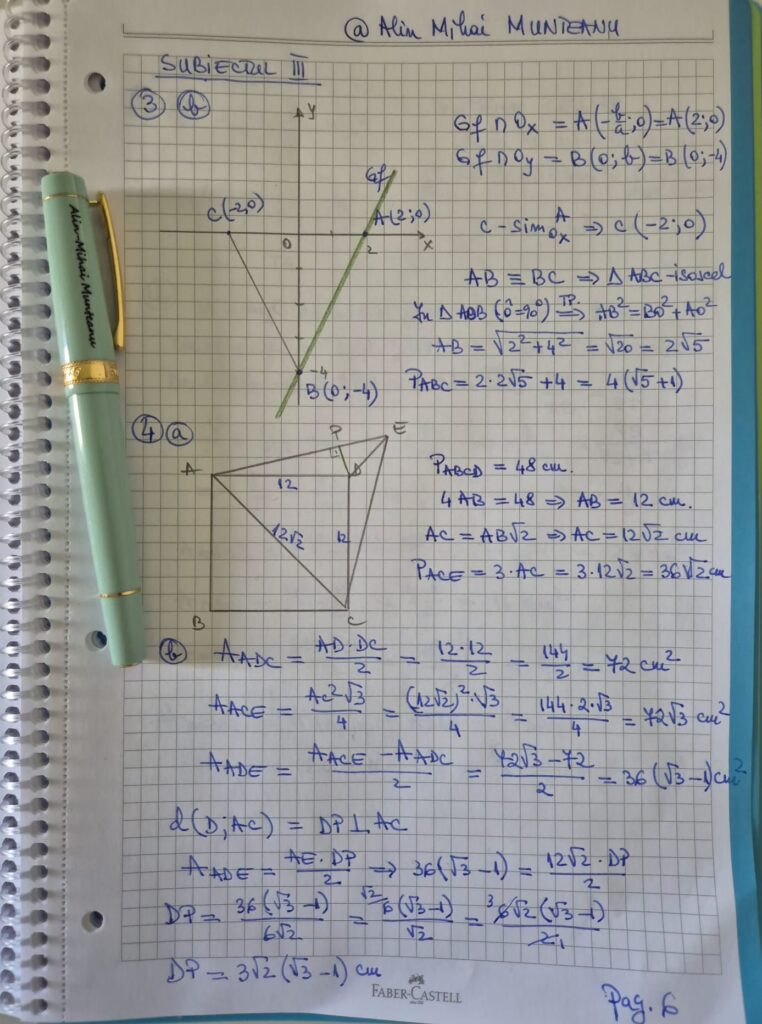 @ Alin Mihai MUNTEANU
SUBIECTUL III
3 b
y
Gf
C(-2;0)
A(2;0)
0
2
x
-4
B(0;-4)
Gf ∩ Ox = A(-b/a;0) = A(2;0)
Gf ∩ Oy = B(0;b) = B(0;-4)
C - sim A Ox ⇒ C(-2;0)
AB ≡ BC ⇒ Δ ABC - isoscel
În Δ AOB (Ô=90°) T.P. ⇒ AB² = BO² + AO²
AB = √2²+4² = √20 = 2√5
P ABC = 2·2√5 + 4 = 4(√5+1)
Alin-Mihai Munteanu
4 a
P
E
A
D
12
12√2
12
B
C
P ABCD = 48 cm.
4AB = 48 ⇒ AB = 12 cm.
AC = AB√2 ⇒ AC = 12√2 cm
P ACE = 3·AC = 3·12√2 = 36√2 cm
b A ADC = AD·DC/2 = 12·12/2 = 144/2 = 72 cm²
A ACE = AC²√3/4 = (12√2)²·√3/4 = 144·2·√3/4 = 72√3 cm²
A ADE = A ACE - A ADC/2 = 72√3-72/2 = 36(√3-1) cm²
d(D;AC) = DP⊥AC
A ADE = AE·DP/2 ⇒ 36(√3-1) = 12√2·DP/2
DP = 36(√3-1)/6√2 = √2) 6(√3-1)/√2 = 3 6√2(√3-1)/2 1
DP = 3√2(√3-1) cm
FABER-CASTELL
Pag. 6